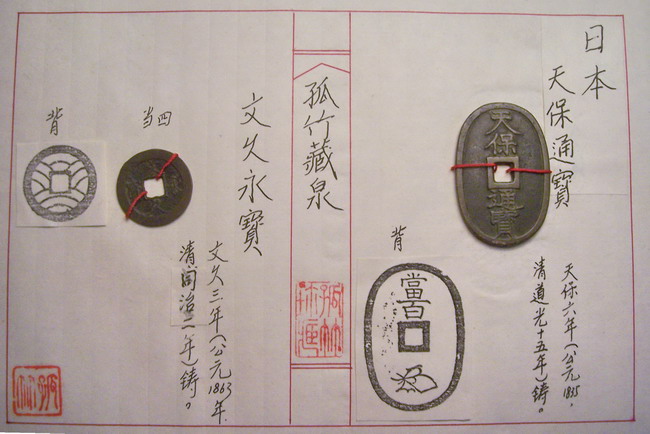 日本
天保通寶
天保通寶
天保六年(公元1835,
清道光十五年)铸。
背
當百
孤竹藏泉
文久永寶
文久三年(公元1863年,
清同治二年)铸。
当四
背